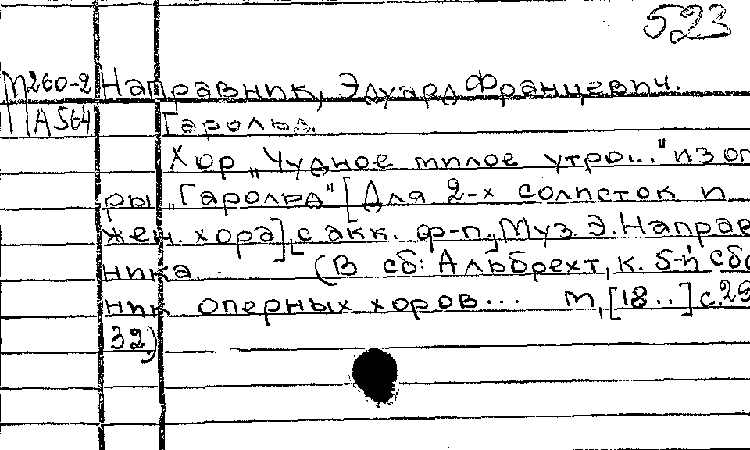 523
М260-2 Направник, Эдуард Францевич.
ПА564 Гарольд.
Хор „Чудное милое утро..." из оп
ры „Гарольд" [Для 2-х солисток и
жен. хора], с акк. ф-п., Муз Э. Направ
ника (В сб: Альбрехт, К. 5-й сбо
ник оперных хоров... М, [18..] с.29
32)